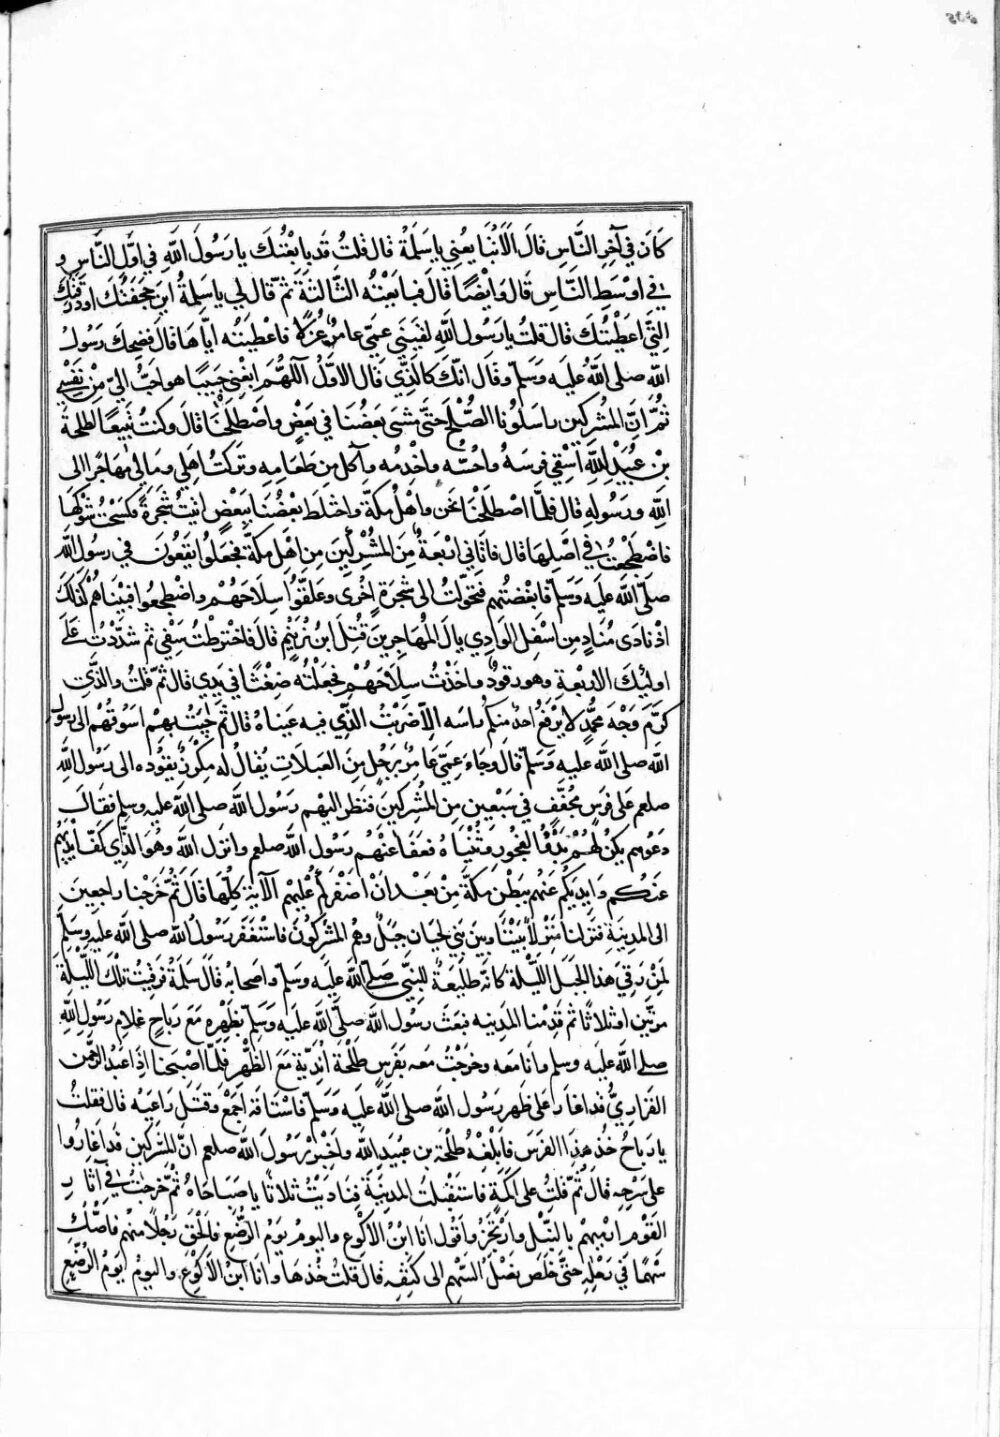 كَانَ فِي آخِرِ النَّاسِ قَالَ أَلَا تُبَايِعُنِي يَا سَلَمَةُ قَالَ قُلْتُ قَد بَايَعْتُكَ يَا رَسُولَ اللَّهِ فِي أَوَّلِ النَّاسِ و
في اوسطِ النَّاسِ قَالَ وَايْضًا قَالَ فَبَايَعْتُه الثَّالِثَةَ ثمّ قَالَ لِي يا سَلمةُ اينَ حَجَفَتُكَ او دَرَقَتُكَ
الّتِي اعطيْتُكَ قَالَ قلتُ يا رَسُولَ اللهِ لقيَنِي عمِّي عامرٌ عُزُلًا فاعْطيتُه ايّاها قَالَ فضحِكَ رَسُولُ
الله صلى الله عليه وَسَلّم وقَال انّكَ كالّذِي قال الاوَّلُ اللّهُمّ ابغِنِي حَبيبًا هوا حَبُّ اليّ مِنْ نَفْسِي
ثُمَّ انّ المشركين راسَلُونا الصُّلْحَ حَتّى مشىَ بَعضُنَا في بَعضٍ واصْطلَحْنَا قال وكنتُ تَبيعًا لطلحةَ
بْنِ عُبيدِ اللهِ اسْقِي فرسَهُ واحُسُّه واخْدِمُه وآكل مِن طعَامِه وتركتُ اهلِي ومَالي مُهَاجرًا الى
اللهِ ورَسُوله قال فلمّا اصْطلَحْنَا نحن واهْلُ مكّة واختلَط بعْضُنَا ببَعْضٍ اتيتُ شجَرَةً فكسَحْتُ شوْكها
فاضْطجَعْتُ في اصْلِهَا قال فاتَاني اربَعَةٌ مِنَ المُشْرِكِينَ مِن اهْل مكّة فجعَلُوا يقَعُونَ في رسُولِ اللهِ
صَلّى الله عليه وَسَلّم فابغضتُهم فتحوّلتُ الى شجَرةٍ اخْرى وعَلّقُوا سِلَاحَهُمْ واضْطجعُوا فبَيْنَاهُمْ كذلكَ
اذ نادَى مُنَادٍ مِن اسْفل الوَادِي يال المُهَاجِرِينَ قُتِلَ ابنُ زُنَيْمٍ قالَ فاخترطْتُ سَيْفي ثم شدَدْتُ عَلى
اولئكَ الاربعةِ وهم رقودٌ واخَذْتُ سِلَاحَهُمْ فجعَلْتُه ضِغْثًا في يدِي قال ثمّ قلتُ والذِي
كرّم وَجْهَ محمّدٍ لا يَرْفعُ احدٌ منكم راسَه الّا ضَربْتُ الّذِي فيه عَيناهُ قال ثمّ جئتُ بهِمْ اسُوقُهُم الى رَسُولِ
الله صلى الله عليه وَسَلّم قال وجَاءَ عمِّي عَامرٌ برَجُلٍ مِنَ العَبَلاتِ يُقالُ له مِكْرَزٌ يقُودُه الى رسُولِ اللهِ
صلعم على فرسٍ مُجفّفٍ في سَبْعِينَ مِنَ المشركِينَ فنظر اليهم رَسُولُ الله صلى الله عليه وسلم فقالَ
دعُوهم يكنْ لَهُمْ بَدْءُ الفجُورِ وَثُنْيَاهُ فعفَا عَنْهُم رسُول الله صلعم وانزل الله وهُوَ الّذِي كفّ ايدِيَهُمْ
عنكم وايديَكم عَنهُم ببَطْنِ مكّةَ مِنْ بَعْدِ انْ اظفرَكُمْ عليْهِم الآيةَ كلّهَا قالَ ثُمّ خَرَجْنا راجِعِينَ
الى المدينةِ فنزلْنا منزلًا بَيْنَنَا وبينَ بَنِي لحيَان جَبَلٌ وهُم المشركُونَ فاسْتغفَر رَسُولُ الله صلى الله عليه وسلّم
لِمَنْ رَقِيَ هذا الجَبَلَ اللّيْلةَ كانّه طليعَةٌ للنبيّ صَلّى اللهُ عليه وَسَلّم واصحابِه قالَ سَلمَةُ فرقيتُ تلكَ اللّيْلةَ
مرّتين او ثلاثًا ثم قدِمْنا المدينه فبَعَثَ رسُول الله صلّى الله عليه وَسَلّم بظَهْرِه مَعَ رباحٍ غلامِ رَسُولِ اللهِ
صلى الله عليه وسلم وانا معه وخرجْتُ معه بفَرَسِ طَلْحَةَ اندّيهِ مَعَ الظّهْرِ فلمّا اصْبَحنا اذا عَبْدُ الرّحمن
الفزَارِيُّ قد اغَارَ على ظهرِ رَسُول الله صلى الله عليه وسلّم فاسْتَاقه اجمَعَ وقتلَ رَاعيَه قال فقلتُ
يا ربَاحُ خُذْ هذا الفَرَسَ فابْلغْهُ طلْحةَ بن عبُيدِ الله واخْبِرْ رَسُولَ الله صلعم انّ المشركِينَ قد اغَارُوا
على سَرْحِه قال ثمّ قمتُ على اكَمَةٍ فاستقبلتُ المدينَةَ فنَادَيْتُ ثلاثًا يا صَبَاحَاهُ ثمّ خرجتُ في آثارِ
القَوْم ارْميهِمْ بالنّبْل وارْتجزُ واقُول انَا ابنُ الأكْوَعِ واليومُ يَوْمُ الرُّضّعِ فالْحَقُ رَجُلًا منهُم فاصُكُّ
سَهْمًا في رَحْلِه حتّى خَلَصَ نصْلُ السَّهْمِ الى كتفِه قال قلتُ خُذْهَا وانَا ابنُ الاكْوَعِ واليومُ يَومُ الرُّضّعِ